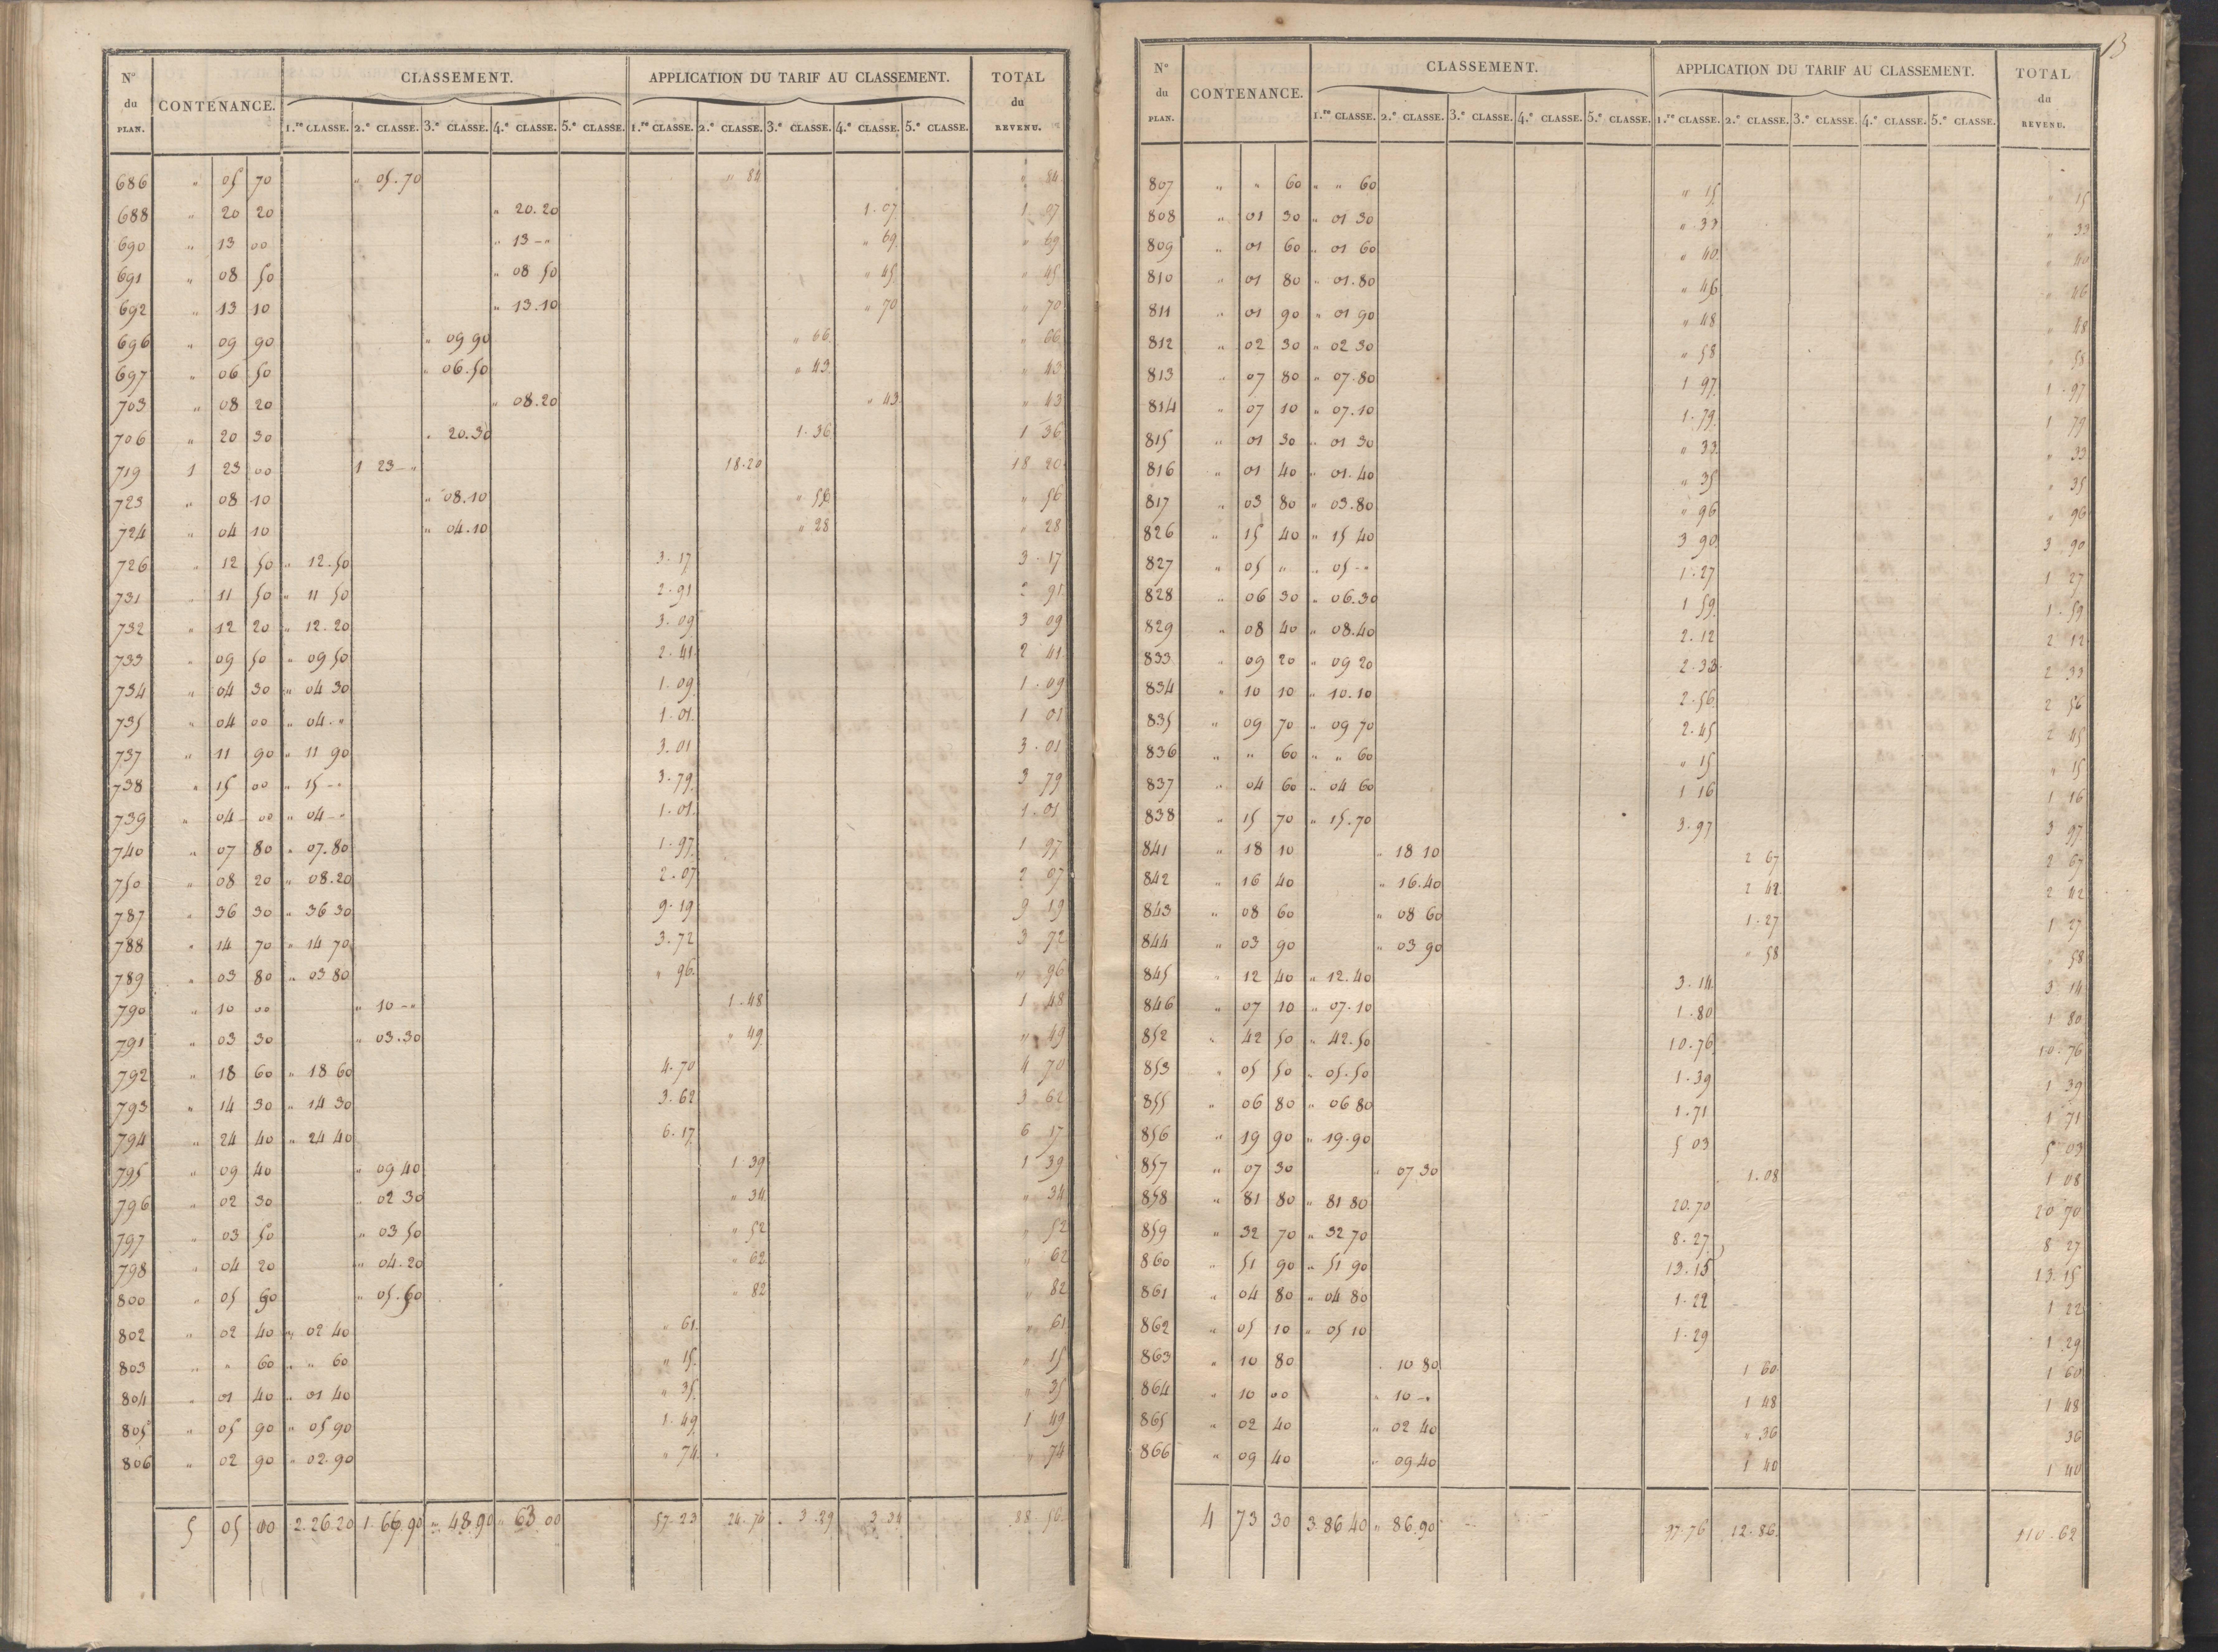 N° du PLAN. CONTENANCE. CLASSEMENT. APPLICATION DU TARIF AU CLASSEMENT. TOTAL du REVENU.
1.re CLASSE. 2.e CLASSE. 3.e CLASSE. 4.e CLASSE. 5.e CLASSE. 1.re CLASSE. 2.e CLASSE. 3.e CLASSE. 4.e CLASSE. 5.e CLASSE.
686 " 05 70 " 05.70 " 84 " 84
688 " 20 20 " 20.20 1.07 1 07
690 " 13 00 " 13 -" " 69 " 69
691 " 08 50 " 08 50 " 45 " 45
692 " 13 10 " 13.10 " 70 " 70
696 " 09 90 " 09 90 " 66 " 66
697 " 06 50 " 06.50 " 43 " 43
703 " 08 20 " 08.20 " 43 " 43
706 " 20 30 " 20.30 1.36 1 36
719 1 23 00 1 23 -" 18.20 18 20
723 " 08 10 " 08.10 " 56 " 56
724 " 04 10 " 04.10 " 28 " 28
726 " 12 50 " 12.50 3.17 3.17
731 " 11 50 " 11 50 2.91 2 91
732 " 12 20 " 12.20 3.09 3 09
733 " 09 50 " 09 50 2.41 2 41
734 " 04 30 " 04 30 1.09 1.09
735 " 04 00 " 04." 1.01 1 01
737 " 11 90 " 11 90 3.01 3.01
738 " 15 00 " 15 -" 3.79 3 79
739 " 04 00 " 04 -" 1.01 1.01
740 " 07 80 " 07.80 1.97 1 97
750 " 08 20 " 08.20 2.07 2 07
787 " 36 30 " 36 30 9.19 9 19
788 " 14 70 " 14 70 3.72 3 72
789 " 03 80 " 03 80 " 96 " 96
790 " 10 00 " 10 -" 1.48 1 48
791 " 03 30 " 03.30 " 49 " 49
792 " 18 60 " 18 60 4.70 4 70
793 " 14 30 " 14 30 3.62 3 62
794 " 24 40 " 24 40 6.17 6 17
795 " 09 40 " 09 40 1 39 1 39
796 " 02 30 " 02 30 " 34 " 34
797 " 03 50 " 03 50 " 52 " 52
798 " 04 20 " 04.20 " 62 " 62
800 " 05 60 " 05.60 " 82 " 82
802 " 02 40 " 02 40 " 61 " 61
803 " " 60 " " 60 " 15 " 15
804 " 01 40 " 01 40 " 35 " 35
805 " 05 90 " 05 90 1.49 1 49
806 " 02 90 " 02.90 " 74 " 74
5 05 00 2.26.20 1.66.90 " 48.90 " 63.00 57.23 24.70 3.29 3.34 88 56
13
N° du PLAN. CONTENANCE. CLASSEMENT. APPLICATION DU TARIF AU CLASSEMENT. TOTAL du REVENU.
1.re CLASSE. 2.e CLASSE. 3.e CLASSE. 4.e CLASSE. 5.e CLASSE. 1.re CLASSE. 2.e CLASSE. 3.e CLASSE. 4.e CLASSE. 5.e CLASSE.
807 " " 60 " " 60 " 15 " 15
808 " 01 30 " 01 30 " 33 " 33
809 " 01 60 " 01 60 " 40 " 40
810 " 01 80 " 01.80 " 46 " 46
811 " 01 90 " 01 90 " 48 " 48
812 " 02 30 " 02 30 " 58 " 58
813 " 07 80 " 07.80 1 97 1.97
814 " 07 10 " 07.10 1.79 1 79
815 " 01 30 " 01 30 " 33 " 33
816 " 01 40 " 01.40 " 35 " 35
817 " 03 80 " 03.80 " 96 " 96
826 " 15 40 " 15 40 3 90 3 90
827 " 05 " " 05 -" 1.27 1 27
828 " 06 30 " 06.30 1 59 1.59
829 " 08 40 " 08.40 2.12 2 12
833 " 09 20 " 09 20 2.33 2 33
834 " 10 10 " 10.10 2.56 2 56
835 " 09 70 " 09 70 2.45 2 45
836 " " 60 " " 60 " 15 " 15
837 " 04 60 " 04 60 1 16 1 16
838 " 15 70 " 15.70 3.97 3 97
841 " 18 10 " 18 10 2 67 2 67
842 " 16 40 " 16.40 2 42 2 42
843 " 08 60 " 08 60 1.27 1 27
844 " 03 90 " 03 90 " 58 " 58
845 " 12 40 " 12.40 3.14 3 14
846 " 07 10 " 07.10 1.80 1 80
852 " 42 50 " 42.50 10.76 10.76
853 " 05 50 " 05.50 1.39 1 39
855 " 06 80 " 06 80 1.71 1 71
856 " 19 90 " 19.90 5 03 5 03
857 " 07 30 " 07.30 1.08 1 08
858 " 81 80 " 81 80 20.70 20 70
859 " 32 70 " 32 70 8.27 8 27
860 " 51 90 " 51 90 13.15 13.15
861 " 04 80 " 04 80 1.22 1 22
862 " 05 10 " 05 10 1.29 1 29
863 " 10 80 " 10 80 1 60 1 60
864 " 10 00 " 10 -" 1 48 1 48
865 " 02 40 " 02 40 " 36 36
866 " 09 40 " 09 40 1 40 1 40
4 73 30 3.86 40 " 86.90 97.76 12.86 110.62